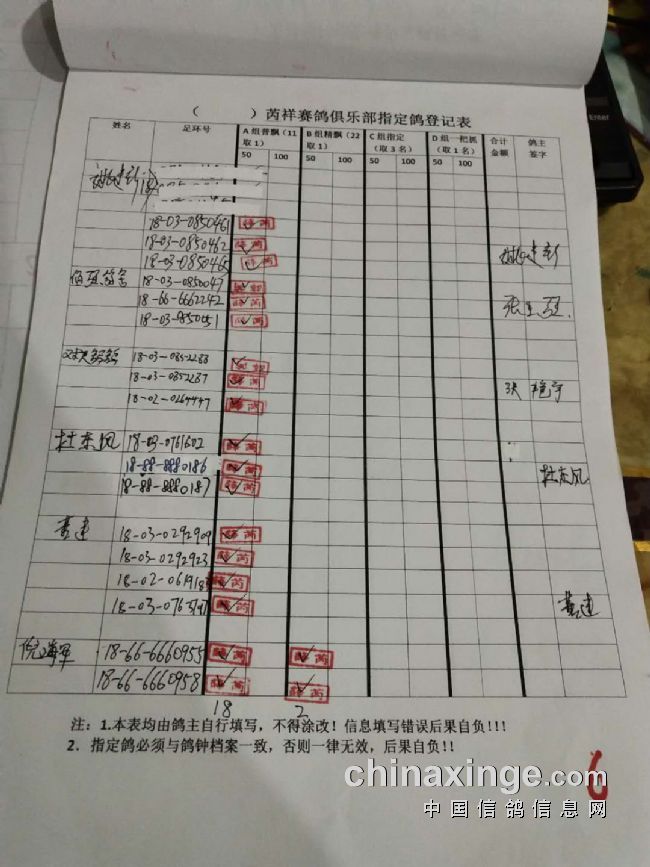 （ ）芮祥赛鸽俱乐部指定鸽登记表
姓名 足环号 A组普飘（11取1） B组精飘（22取1） C组指定（取3名） D组一把抓（取1名） 合计金额 鸽主签字
50 100 50 100 50 100 50 100
18-03-0850461
18-03-0850462
18-03-0850465
18-03-0850047
18-66-6662242
18-03-0850051
18-03-0852288
18-03-0852287
18-02-0267447
杜东风 18-03-0761602
18-88-8880186
18-88-8880187 杜东风
18-03-0292909
18-03-0292923
18-02-0619183
倪海军 18-66-6660955
18-66-6660958
18 2
注：1.本表均由鸽主自行填写，不得涂改！信息填写错误后果自负!!!
2．指定鸽必须与鸽钟档案一致，否则一律无效，后果自负!!
6
chinaxinge.com
中国信鸽信息网
Enter